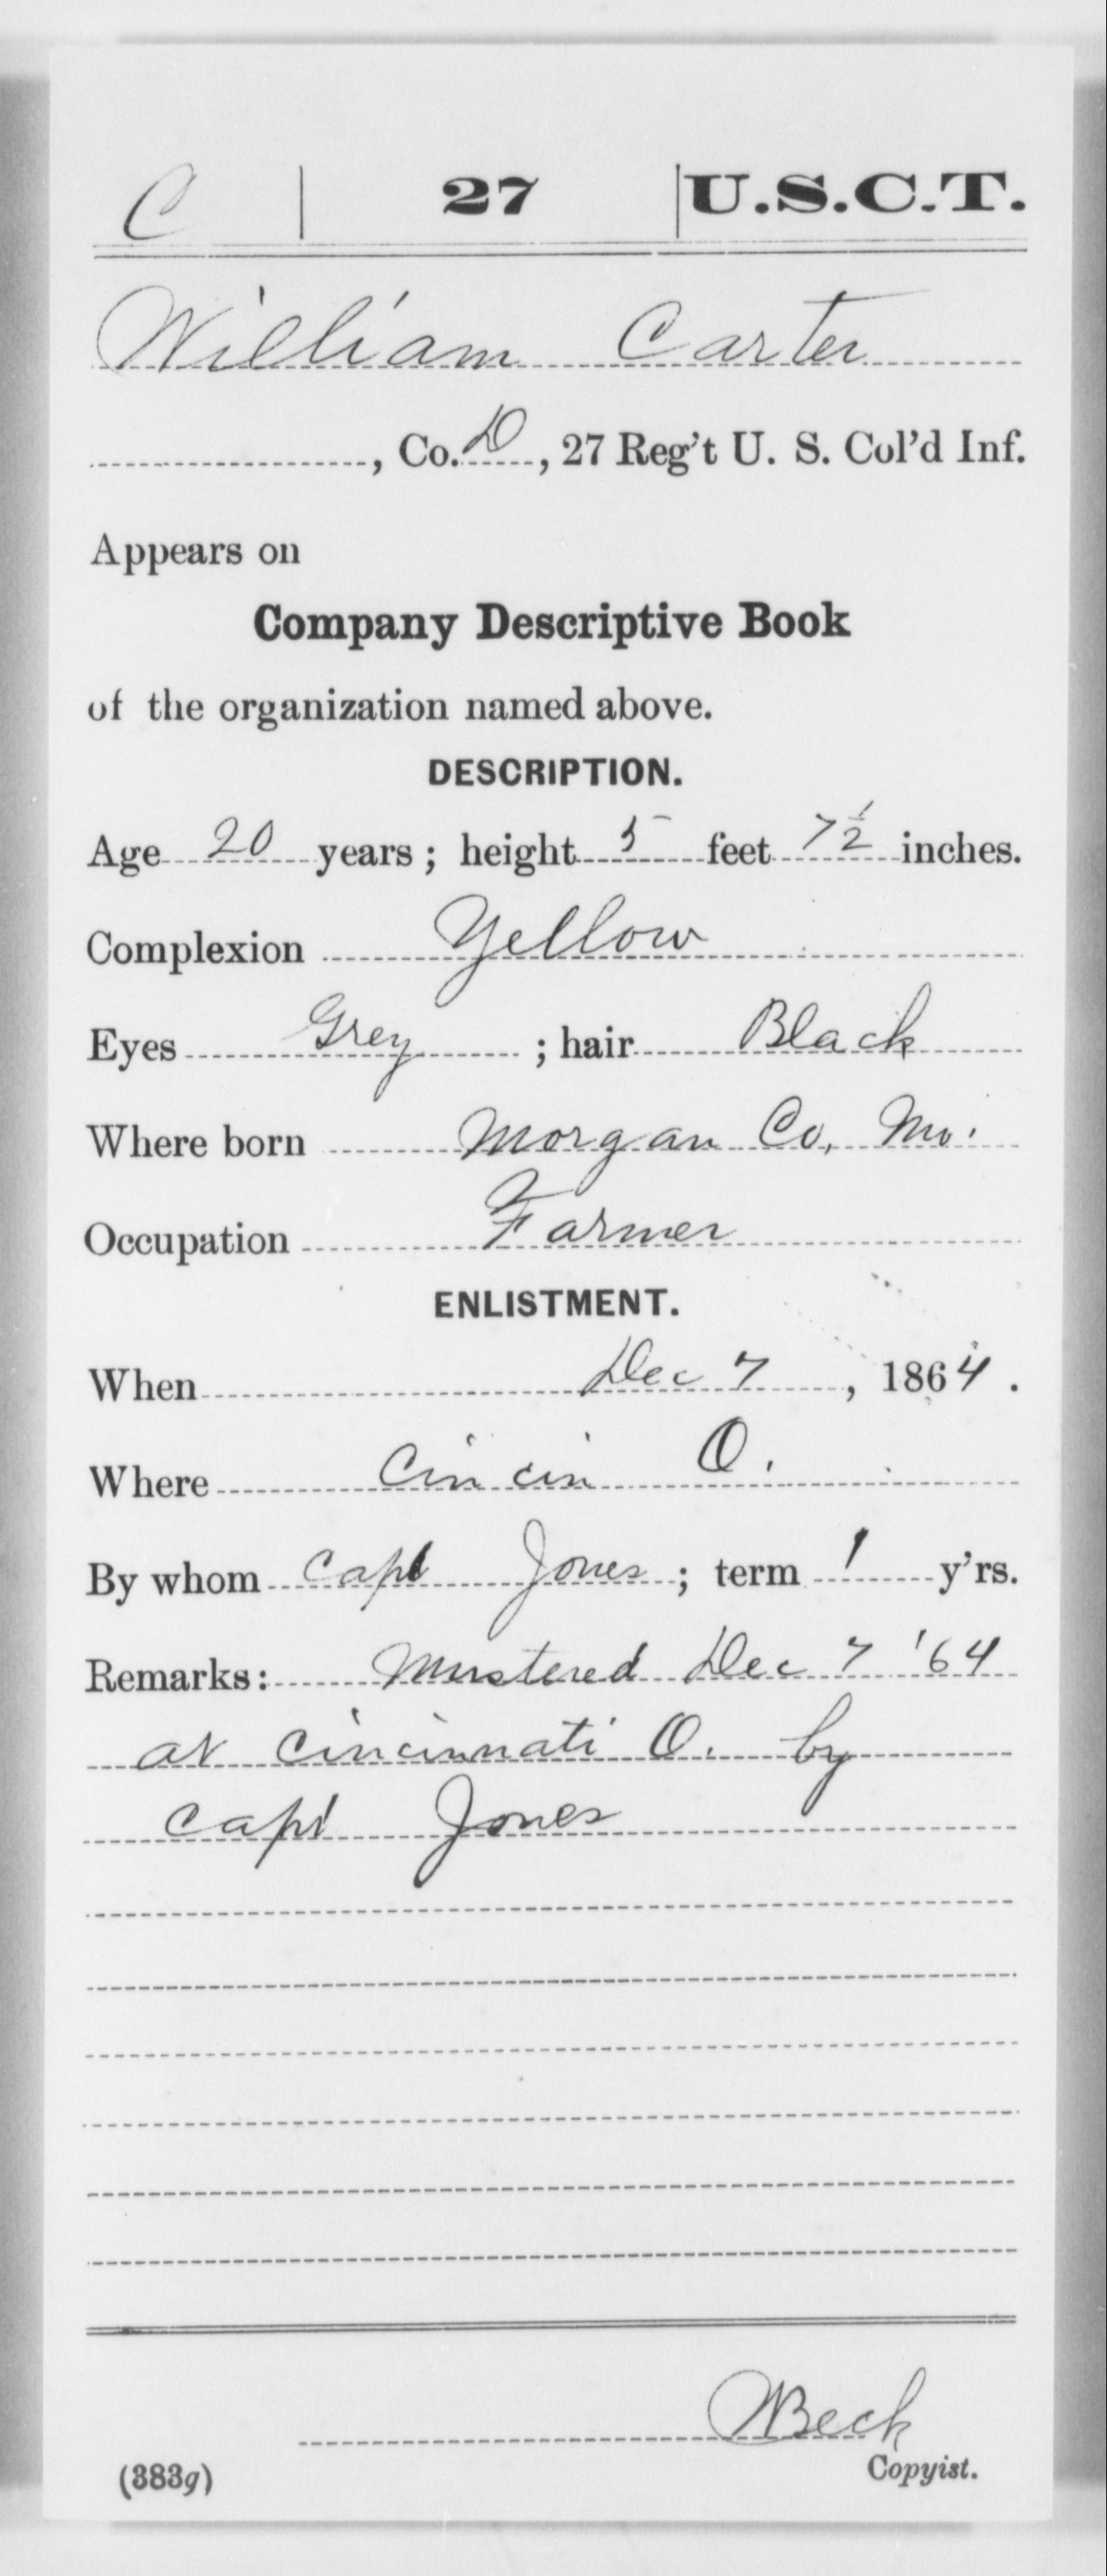 C | 27 | U.S.C.T.
William Carter
, Co. D, 27 Reg't U. S. Col'd Inf.
Appears on
Company Descriptive Book
of the organization named above.
DESCRIPTION.
Age 20 years; height 5 feet 7½ inches.
Complexion Yellow
Eyes Grey; hair Black
Where born Morgan Co, Mo.
Occupation Farmer
ENLISTMENT.
When Dec 7, 1864.
Where Cincin O.
By whom Capt Jones; term 1 y'rs.
Remarks: Mustered Dec 7 '64
at Cincinnati O. by
Capt Jones
WBeck
(383g) Copyist.